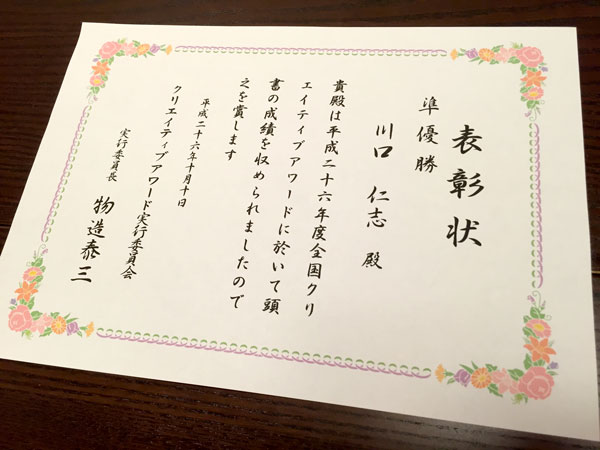 表彰状
準優勝
川口 仁志 殿
貴殿は平成二十六年度全国クリ
エイティブアワードに於いて頭
書の成績を収められましたので
之を賞します
平成二十六年十月十日
クリエイティブアワード実行委員会
実行委員長 物造泰三